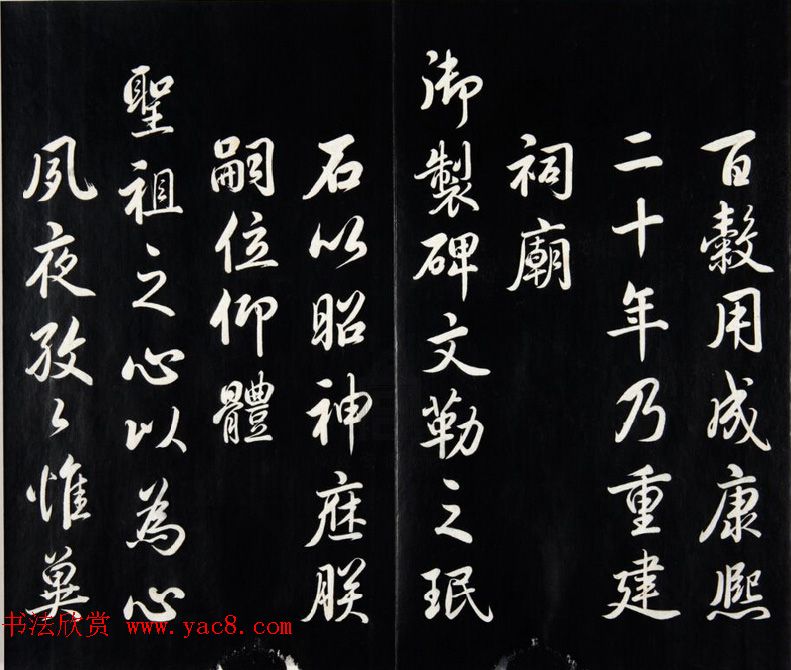 百穀用成康熙
二十年乃重建
祠廟
御製碑文勒之珉
石以昭神庥朕
嗣位仰體
聖祖之心以為心
夙夜孜〻惟冀
书法欣赏 www.yac8.com